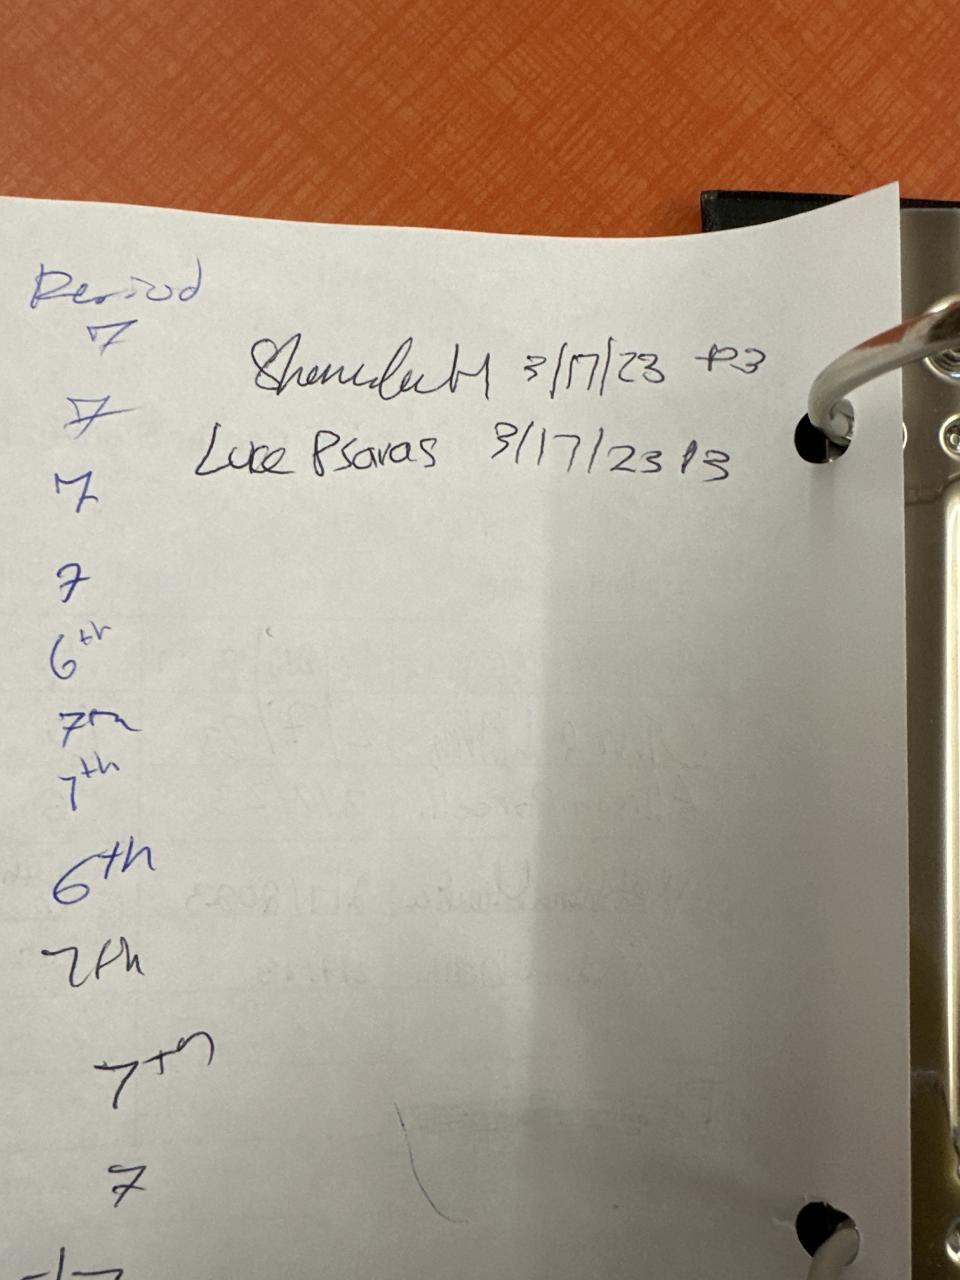 Period
7
3/17/23 P3
7
Luke Psaras 3/17/23 P3
7
7
6th
7th
7th
6th
7th
7th
7